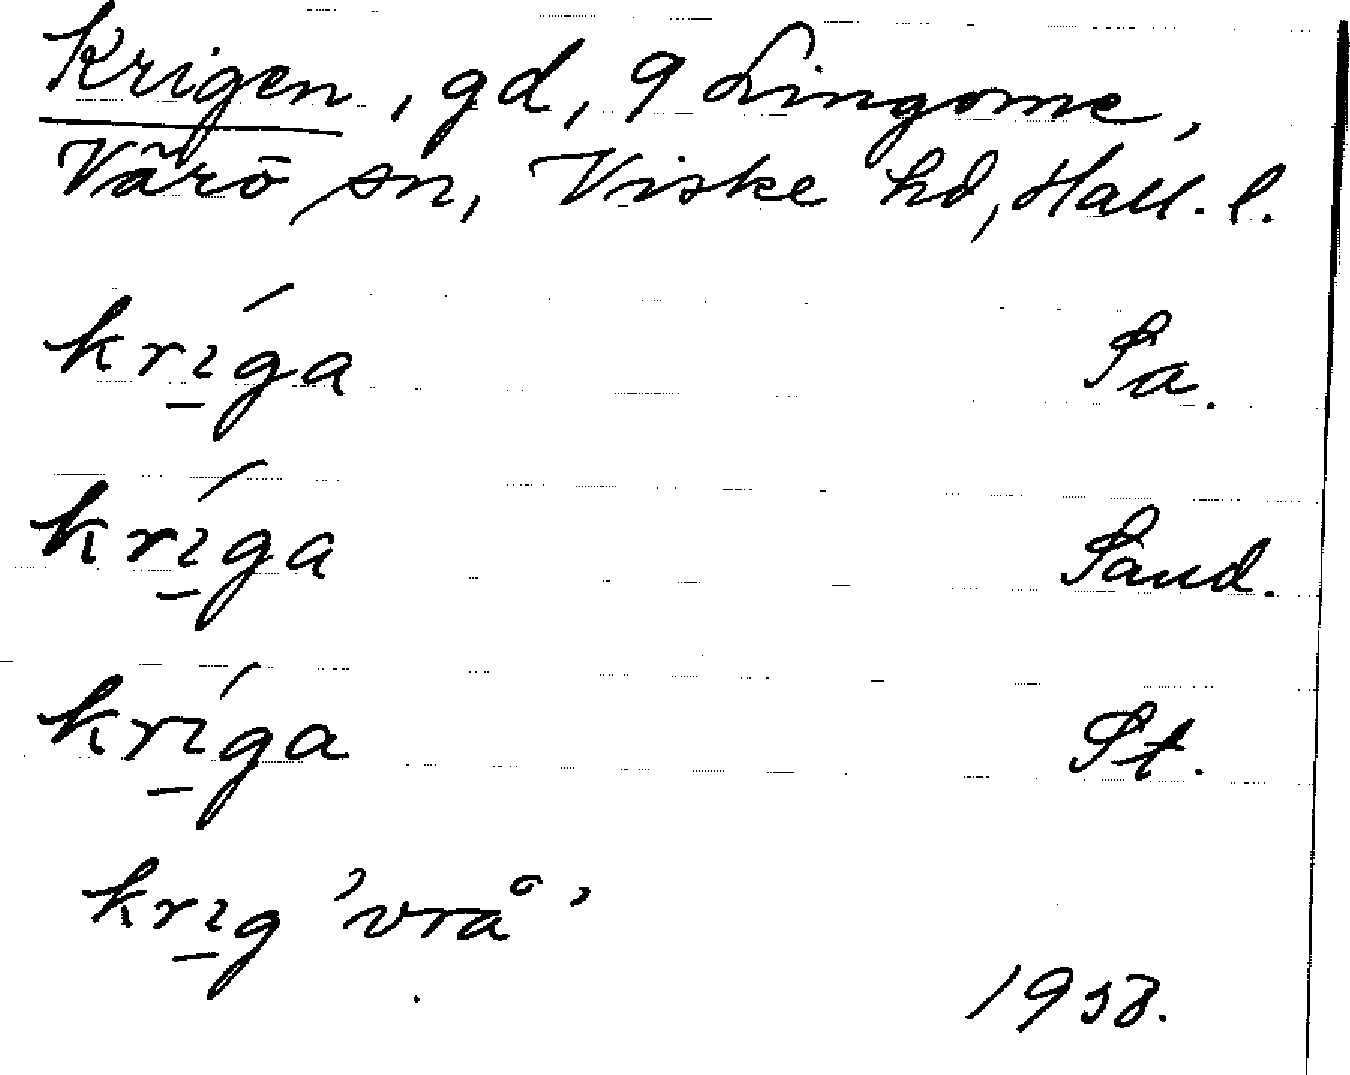 Krigen, gd, 9 Lingome,
Värö sn, Viske hd, Hall. l.
krí̲ga Sa.
krí̲ga Sand.
krí̲ga St.
kri̲g 'vrå'
1958.